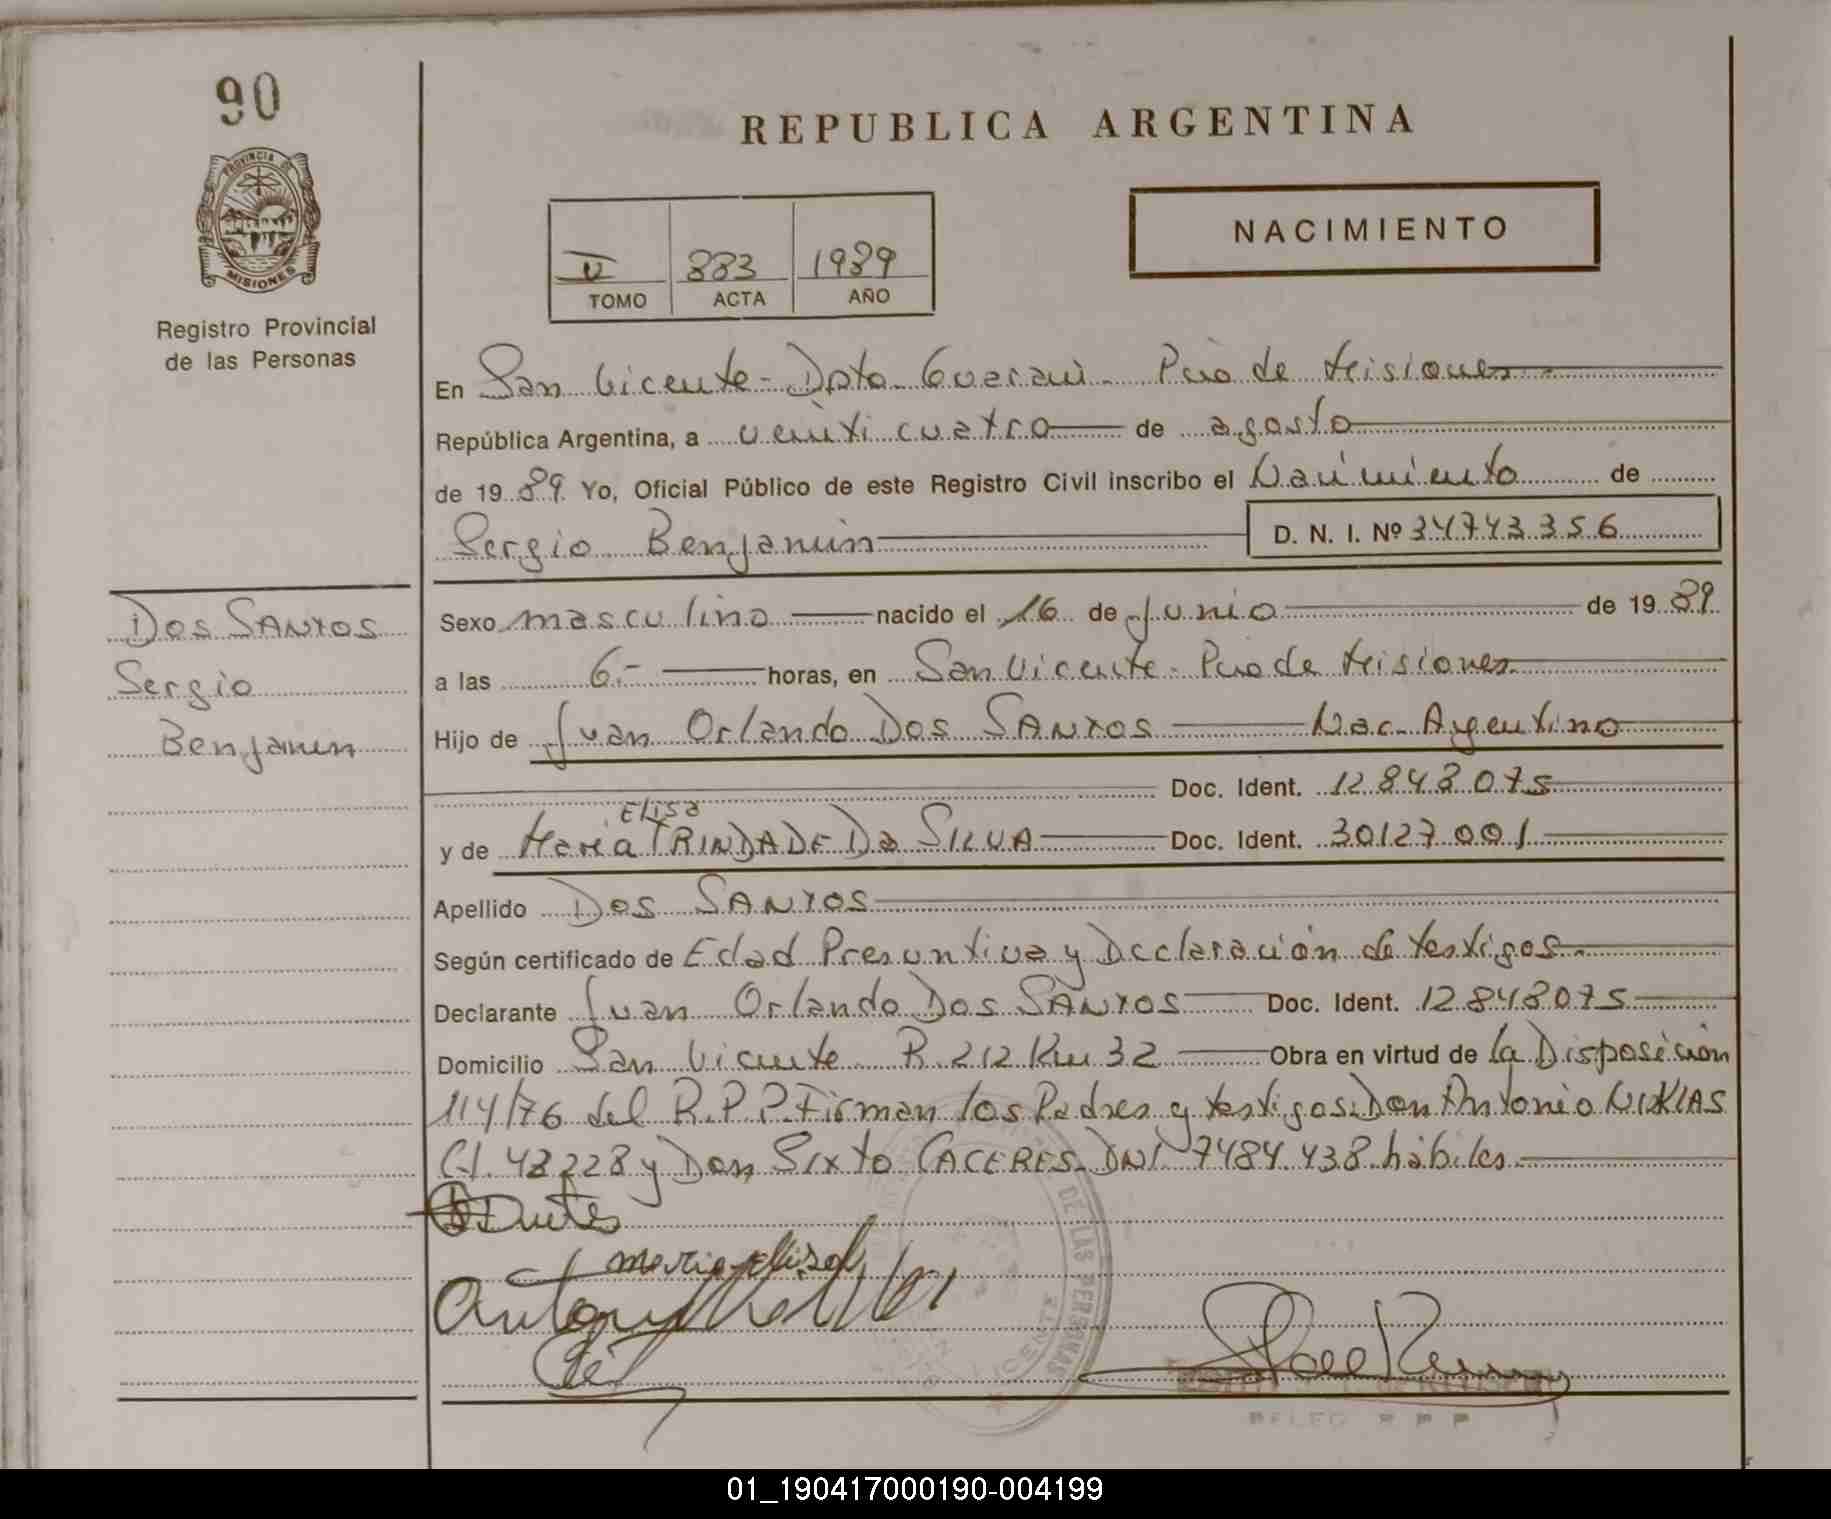 90
PROVINCIA DE
MISIONES
Registro Provincial
de las Personas
REPUBLICA ARGENTINA
NACIMIENTO
V 883 1989
TOMO ACTA AÑO
En San Vicente - Dpto Guarani - Pcia de Misiones
República Argentina, a veinti cuatro de agosto
de 1989 Yo, Oficial Público de este Registro Civil inscribo el Nacimiento de
Sergio Benjamin D. N. I. Nº 34743356
Dos SANTOS
Sergio
Benjamin
Sexo masculino nacido el 16 de Junio de 1989
a las 6.- horas, en San Vicente - Pcia de Misiones
Hijo de Juan Orlando Dos SANTOS Nac. Argentino
Doc. Ident. 12.848.075
Elisa
y de Maria TRINDADE Da SILVA Doc. Ident. 30127.001
Apellido Dos SANTOS
Según certificado de Edad Presuntiva y Declaración de testigos.-
Declarante Juan Orlando Dos SANTOS Doc. Ident. 12.848.075
Domicilio San Vicente R. 212 Km 32 Obra en virtud de la Disposición
114/76 del R.P.P. Firman los Padres y testigos: Don Antonio
C.I. 43228 y Don Sixto CACERES DNI 7484.438 hábiles.
maria elisa
DE LAS PERSONAS
01_190417000190-004199